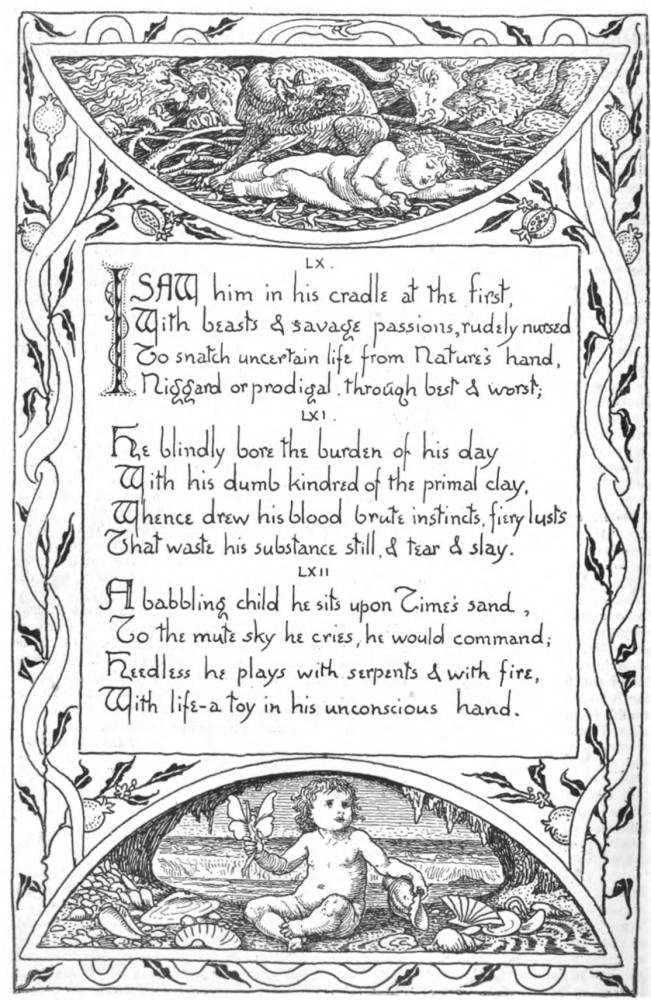 LX.
I SAW him in his cradle at the first,
With beasts & savage passions, rudely nursed
To snatch uncertain life from Nature's hand,
Niggard or prodigal, through best & worst;
LXI.
He blindly bore the burden of his day
With his dumb kindred of the primal clay,
Whence drew his blood brute instincts, fiery lusts
That waste his substance still, & tear & slay.
LXII
A babbling child he sits upon Time's sand,
To the mute sky he cries, he would command;
Heedless he plays with serpents & with fire,
With life-a toy in his unconscious hand.